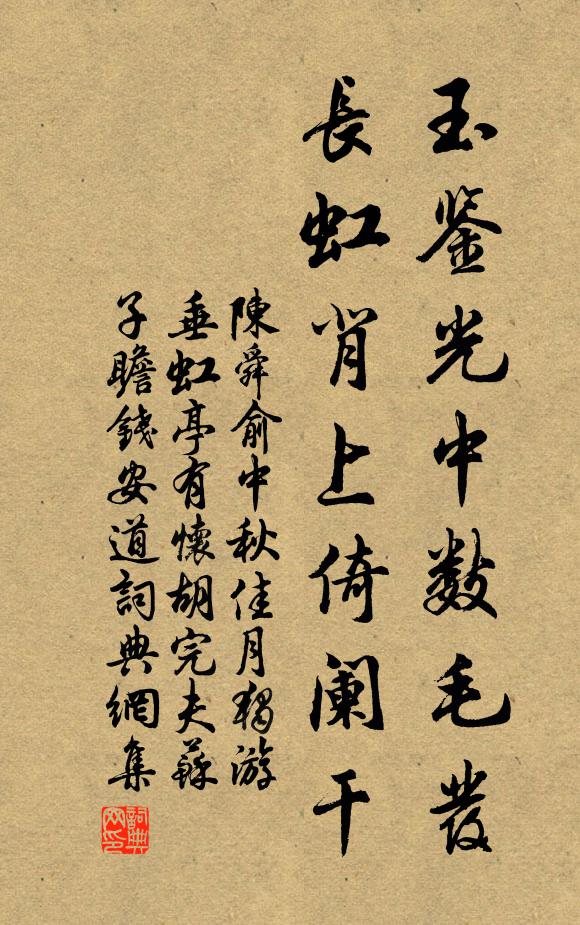 玉鉴光中数毛發
長虹背上倚阑干
陳舜俞中秋佳月獨游
垂虹亭有懷胡完夫蘇
子瞻錢安道詞典網集
詞典網印